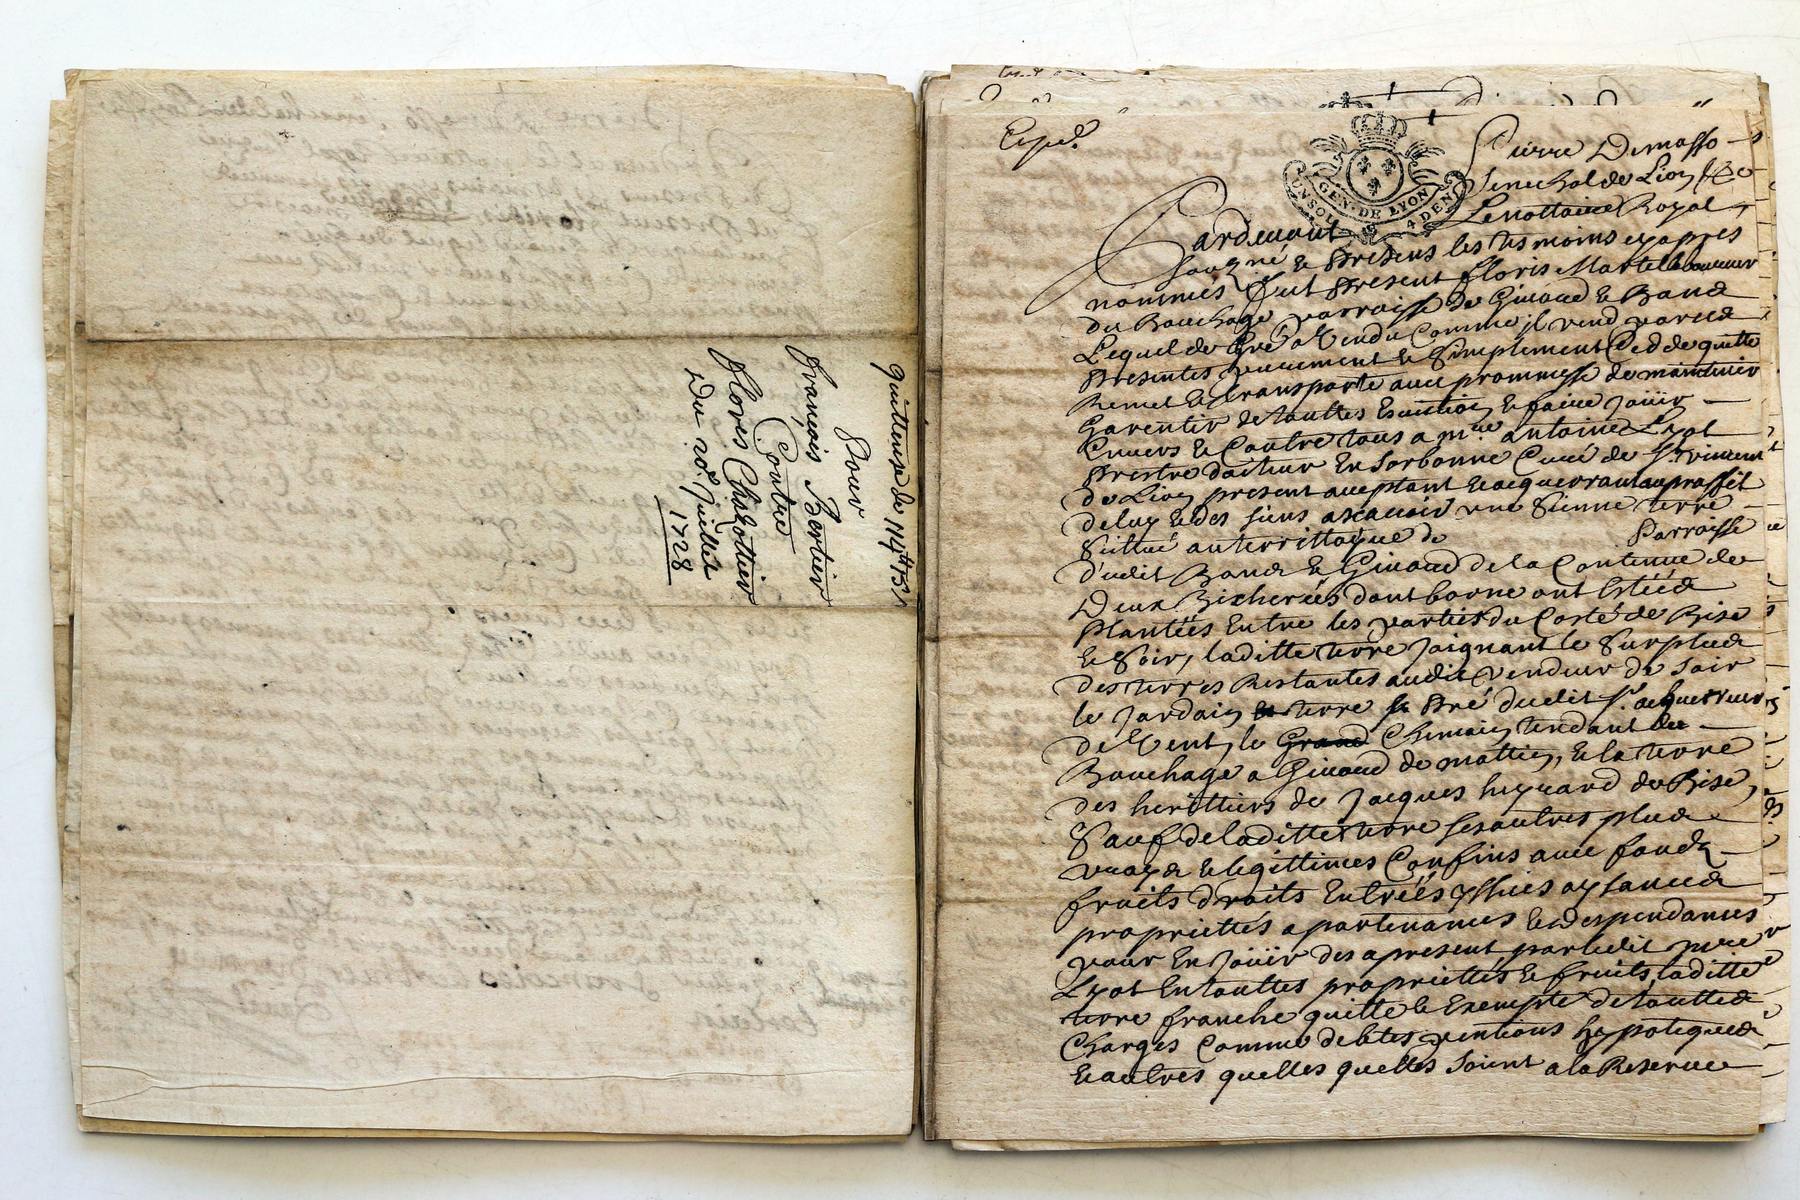 quittense de 114
Pour
François Bertier
Contre
Floris Chazottier
Du 20e Juillet
1728
Expe.
GEN. DE LYON
UN SOL 4 DEN
Pierre Demasso
Senechal de Lion
Pardevant Le nottaire Royal
soubzne & presens les tesmoins cy apres
nommés fut present floris Martel
du Bouchage parroisse de Giuoud le Band
Lequel de gré a Vendu Comme il vend par ces
presentes purement & Simplement Ced de quitte
Remet & transporte avec prommesse de maintenir
Garentir de touttes Euiction & faire jouir
Envers & Contre tous a mre antoine Lyot
Prestre docteur En Sorbonne Curé de St vincent
de Lion present acceptant & acquerrant au proffit
de luy & des siens ascauoir une Sienne terre
Scittué au territtoyre de Parroisse
dudit Band & Giuoud de la Contenue de
Deux Bicherées dont borne ont Estéés
plantées Entre les parties du Costé de Bise
& Soir, laditte terre joignant le Surplus
des terres Restantes audit Vendeur de soir
le jardain terre & Pré dudit Sr. acquerreur
de Vent, le Grand Chemain tendant du
Bouchage a Giuoud de mattin, & la terre
des herittiers de Jacques huguard de Bise,
Sauf de laditte terre ses autres plus
vrays & legittimes Confins avec fonds
fruits droits Entréés yssues aysances
propriettés apartenances & despendances
pour En jouir des a present par ledit mre
Lyot En touttes propriettés & fruits, laditte
terre franche quitte & Exempte de touttes
Charges Comme debtes pentions hypoteques
& autres quelles quelles soient a la Reserve